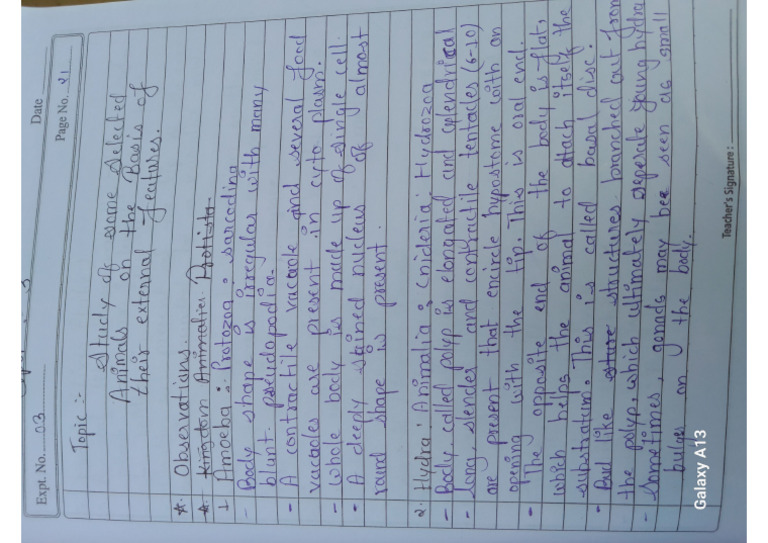 Date
Expt. No. 03
Page No. 21
Topic :-
Study of some selected
Animals on the Basis of
their external features.
* Observations.
* Kingdom Animalies. Protista
1 Amoeba : Protozoa : sarcodina
- Body shape is irregular with many
blunt pseudopodia.
- A contractile vacaole and several food
vacaoles are present in cyto plasm.
- whole body is made up of single cell.
- A deeply stained nucleus of almost
round shape is present.
2. Hydra : Animalia ; Cnideria : Hydrozoa
- Body, called polyp is elongated and cylendrical
- Long, slender and contractile tentacles (6-10)
are present that encircle hypostome with an
opening with the tip. This is oral end.
- The opposite end of the body is flat,
which helps the animal to attach itself the
substratum. This is called basal disc.
- Bud like structures branched out from
the polyp, which ultimately seperate young hydra
- Sometimes, gonads may bee seen as small
bulges on the body.
Teacher's Signature :
Galaxy A13